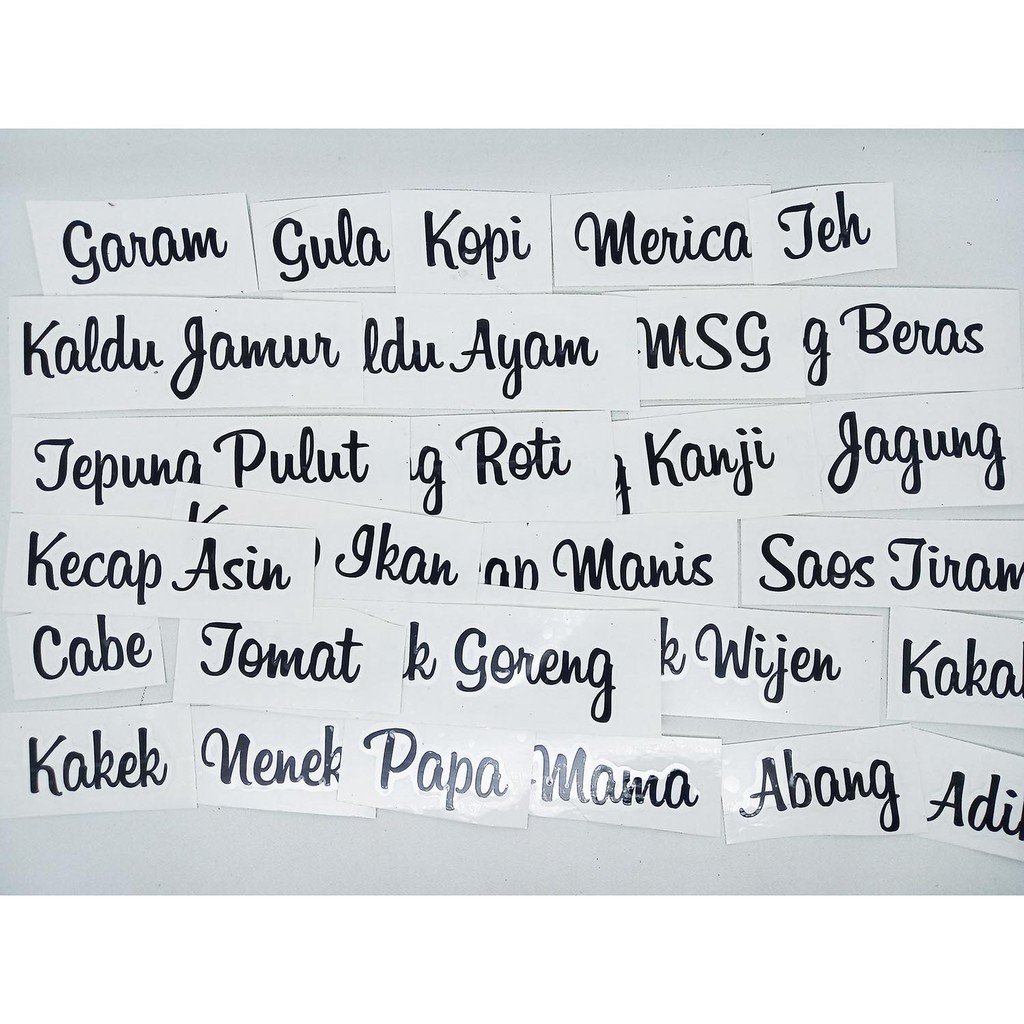 Garam Gula Kopi Merica Teh
Kaldu Jamur ldu Ayam MSG g Beras
Tepung Pulut g Roti Kanji Jagung
Kecap Asin Ikan ap Manis Saos Tiram
Cabe Tomat k Goreng k Wijen Kaka
Kakek Nenek Papa Mama Abang Adi